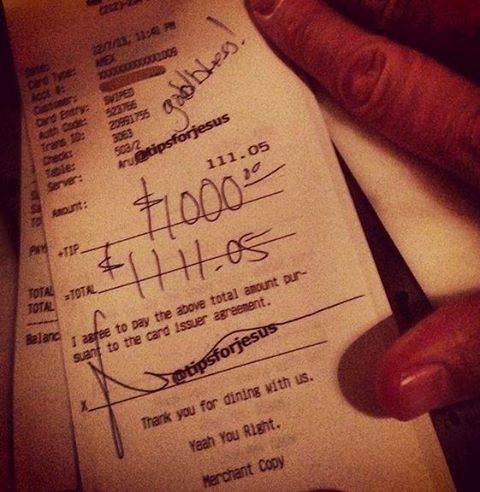 Date: 12/7/13, 11:41 PM
Card Type: AMEX
Acct #: XXXXXXXXXXX1009
Customer:
Card Entry: SWIPED
Auth Code: 523766
Trans ID: 20991755
Check: 3063
Table: 503/2
Server: Aru
godbless!
@tipsforjesus
Amount: 111.05
+TIP $1000.00
=TOTAL $1111.05
I agree to pay the above total amount pur-
suant to the card issuer agreement.
X
@tipsforjesus
Thank you for dining with us.
Yeah You Right.
Merchant Copy
TOTAL
TOTAL
Balanc